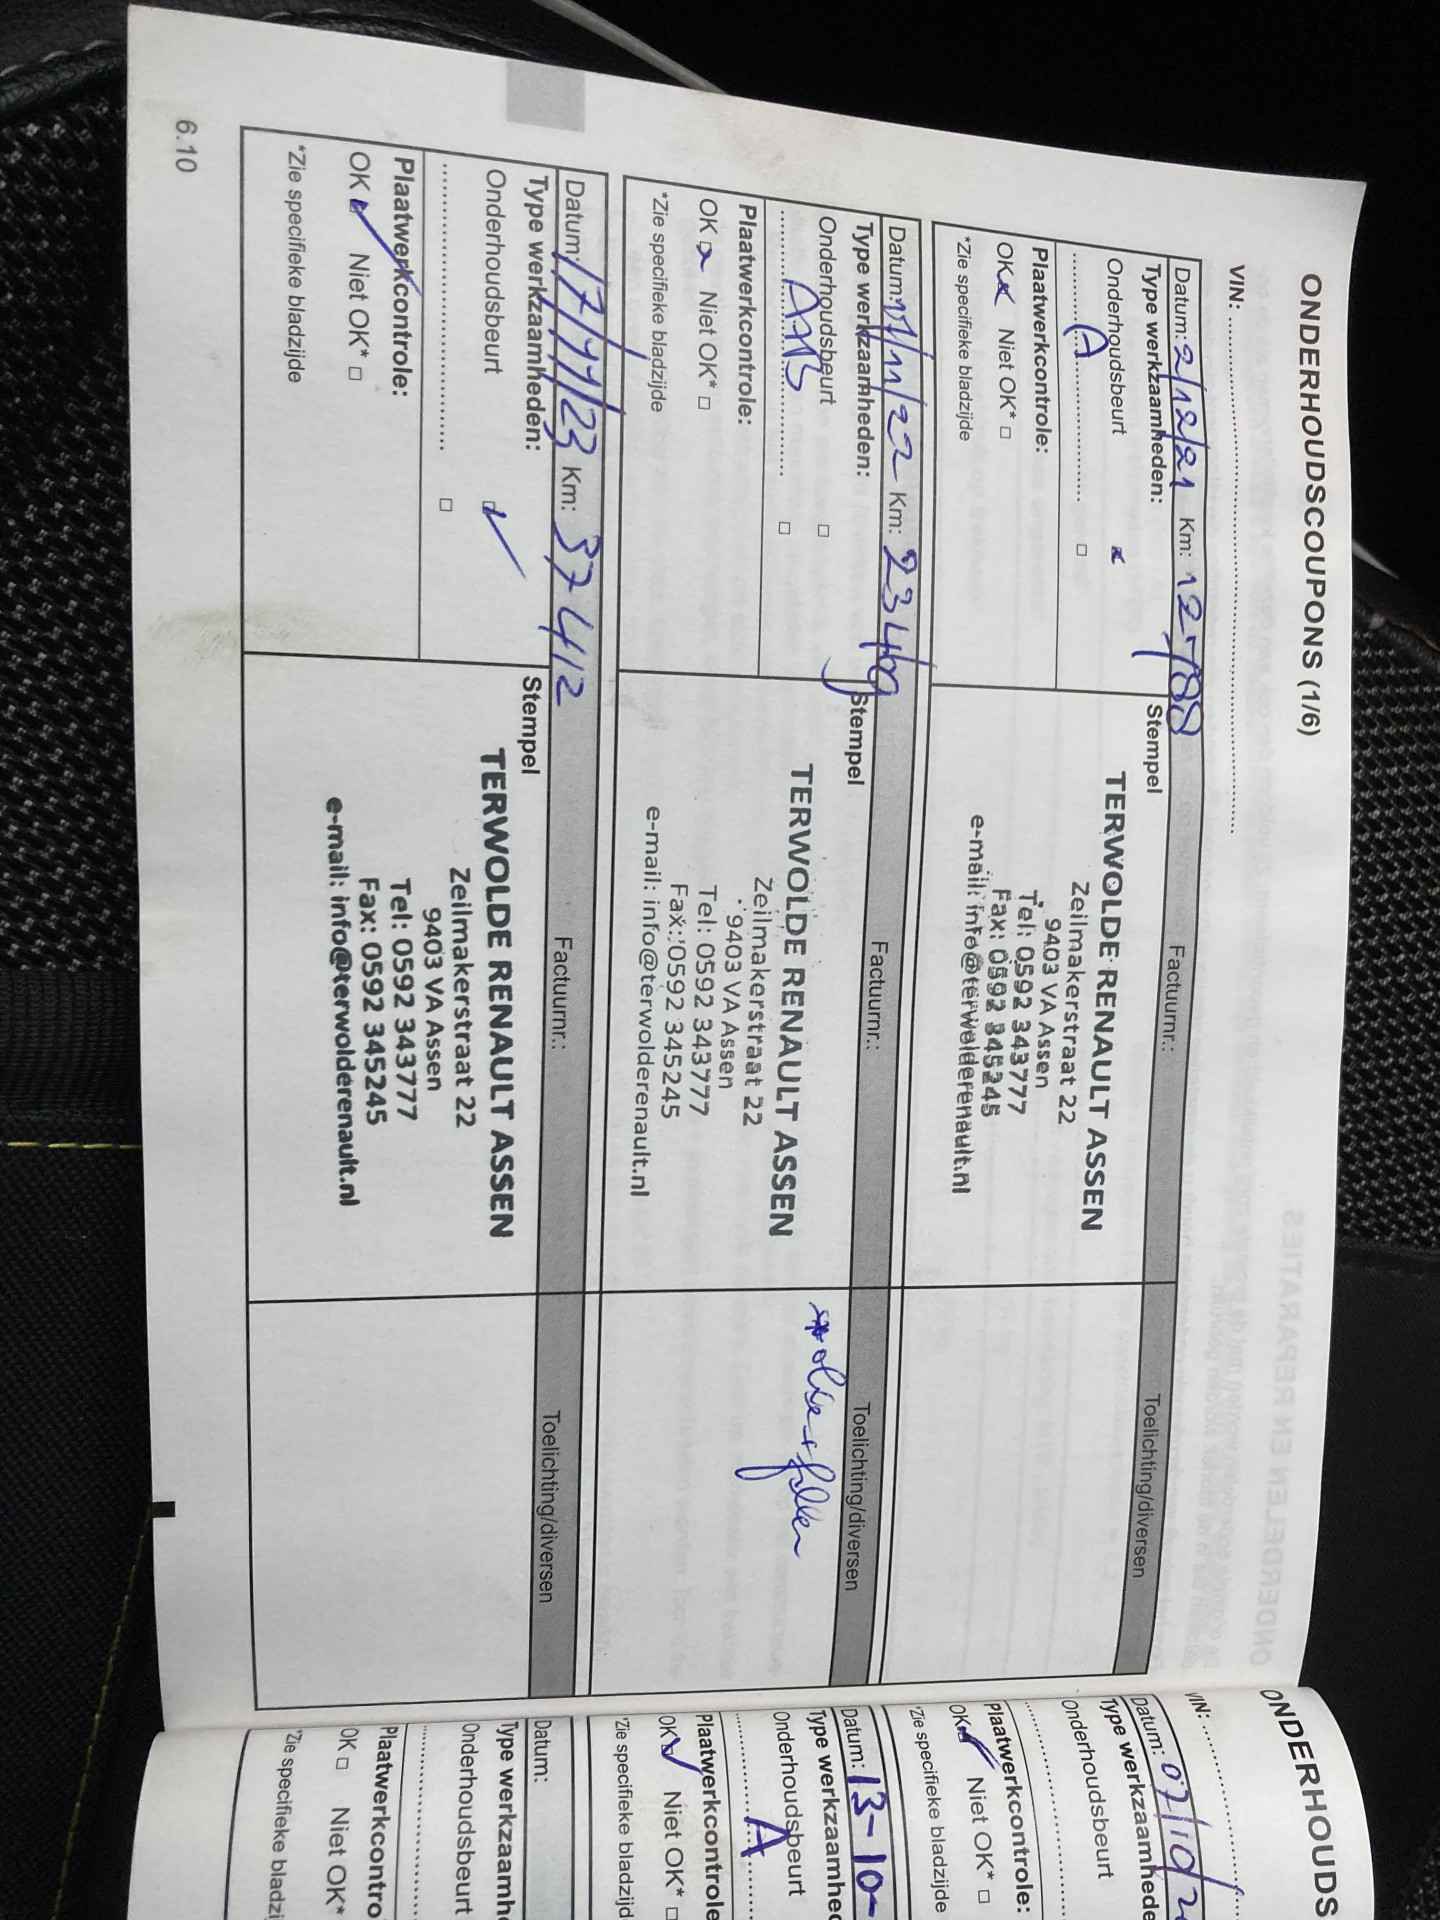 ONDERHOUDSCOUPONS (1/6)
VIN:
Datum: 2/12/21 Km: 12788 Factuurnr.: Toelichting/diversen
Type werkzaamheden: Stempel
Onderhoudsbeurt
(A
Plaatwerkcontrole:
OK Niet OK*
*Zie specifieke bladzijde
TERWOLDE RENAULT ASSEN
Zeilmakerstraat 22
9403 VA Assen
Tel: 0592 343777
Fax: 0592 345245
e-mail: info@terwolderenault.nl
Datum: 17/11/22 Km: 23469 Factuurnr.: Toelichting/diversen
Type werkzaamheden: Stempel
Onderhoudsbeurt
Plaatwerkcontrole:
OK Niet OK*
*Zie specifieke bladzijde
TERWOLDE RENAULT ASSEN
Zeilmakerstraat 22
9403 VA Assen
Tel: 0592 343777
Fax: 0592 345245
e-mail: info@terwolderenault.nl
olie + filter
Datum: 17/11/23 Km: 37412 Factuurnr.: Toelichting/diversen
Type werkzaamheden: Stempel
Onderhoudsbeurt
Plaatwerkcontrole:
OK Niet OK*
*Zie specifieke bladzijde
TERWOLDE RENAULT ASSEN
Zeilmakerstraat 22
9403 VA Assen
Tel: 0592 343777
Fax: 0592 345245
e-mail: info@terwolderenault.nl
6.10
ONDERHOUDS
VIN:
Datum: 07/10/2
Type werkzaamhede
Onderhoudsbeurt
Plaatwerkcontrole:
OK Niet OK*
*Zie specifieke bladzijde
Datum: 13-10-
Type werkzaamhed
Onderhoudsbeurt
A
Plaatwerkcontrole
OK Niet OK*
*Zie specifieke bladzijd
Datum:
Type werkzaamh
Onderhoudsbeurt
Plaatwerkcontro
OK Niet OK*
*Zie specifieke bladzi